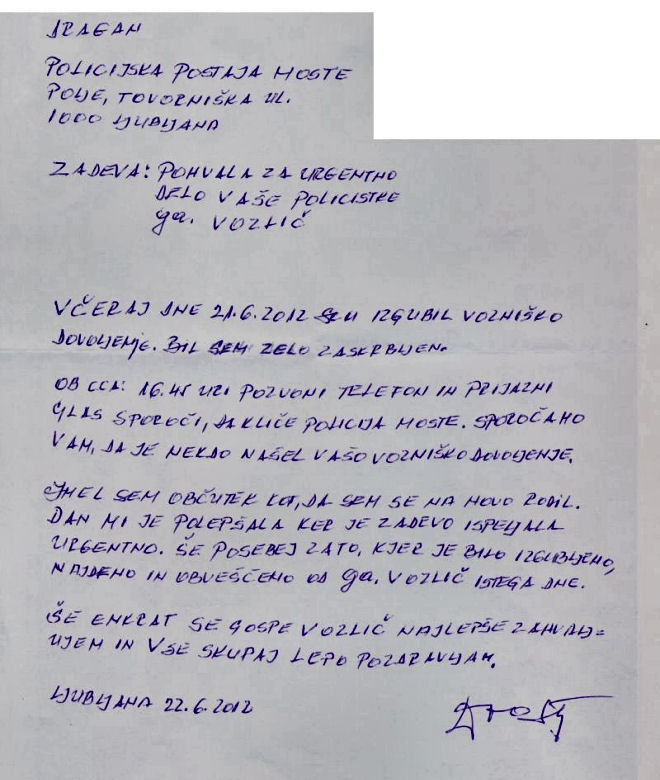 DRAGAN
POLICIJSKA POSTAJA MOSTE
POLJE, TOVORNIŠKA UL.
1000 LJUBLJANA
ZADEVA: POHVALA ZA URGENTNO
DELO VAŠE POLICISTKE
ga. VOZLIČ
VČERAJ DNE 21.6.2012 SEM IZGUBIL VOZNIŠKO
DOVOLJENJE. BIL SEM ZELO ZASKRBLJEN.
OB CCA: 16.45 URI POZVONI TELEFON IN PRIJAZNI
GLAS SPOROČI, DA KLIČE POLICIJA MOSTE. SPOROČAMO
VAM, DA JE NEKDO NAŠEL VAŠO VOZNIŠKO DOVOLJENJE.
IMEL SEM OBČUTEK KOT, DA SEM SE NA NOVO RODIL.
DAN MI JE POLEPŠALA KER JE ZADEVO ISPELJALA
URGENTNO. ŠE POSEBEJ ZATO, KJER JE BILO IZGUBLJENO,
NAJDENO IN OBVEŠČENO OD ga. VOZLIČ ISTEGA DNE.
ŠE ENKRAT SE GOSPE VOZLIČ NAJLEPŠE ZAHVALJ=
UJEM IN VSE SKUPAJ LEPO POZDRAVLJAM.
LJUBLJANA 22.6.2012